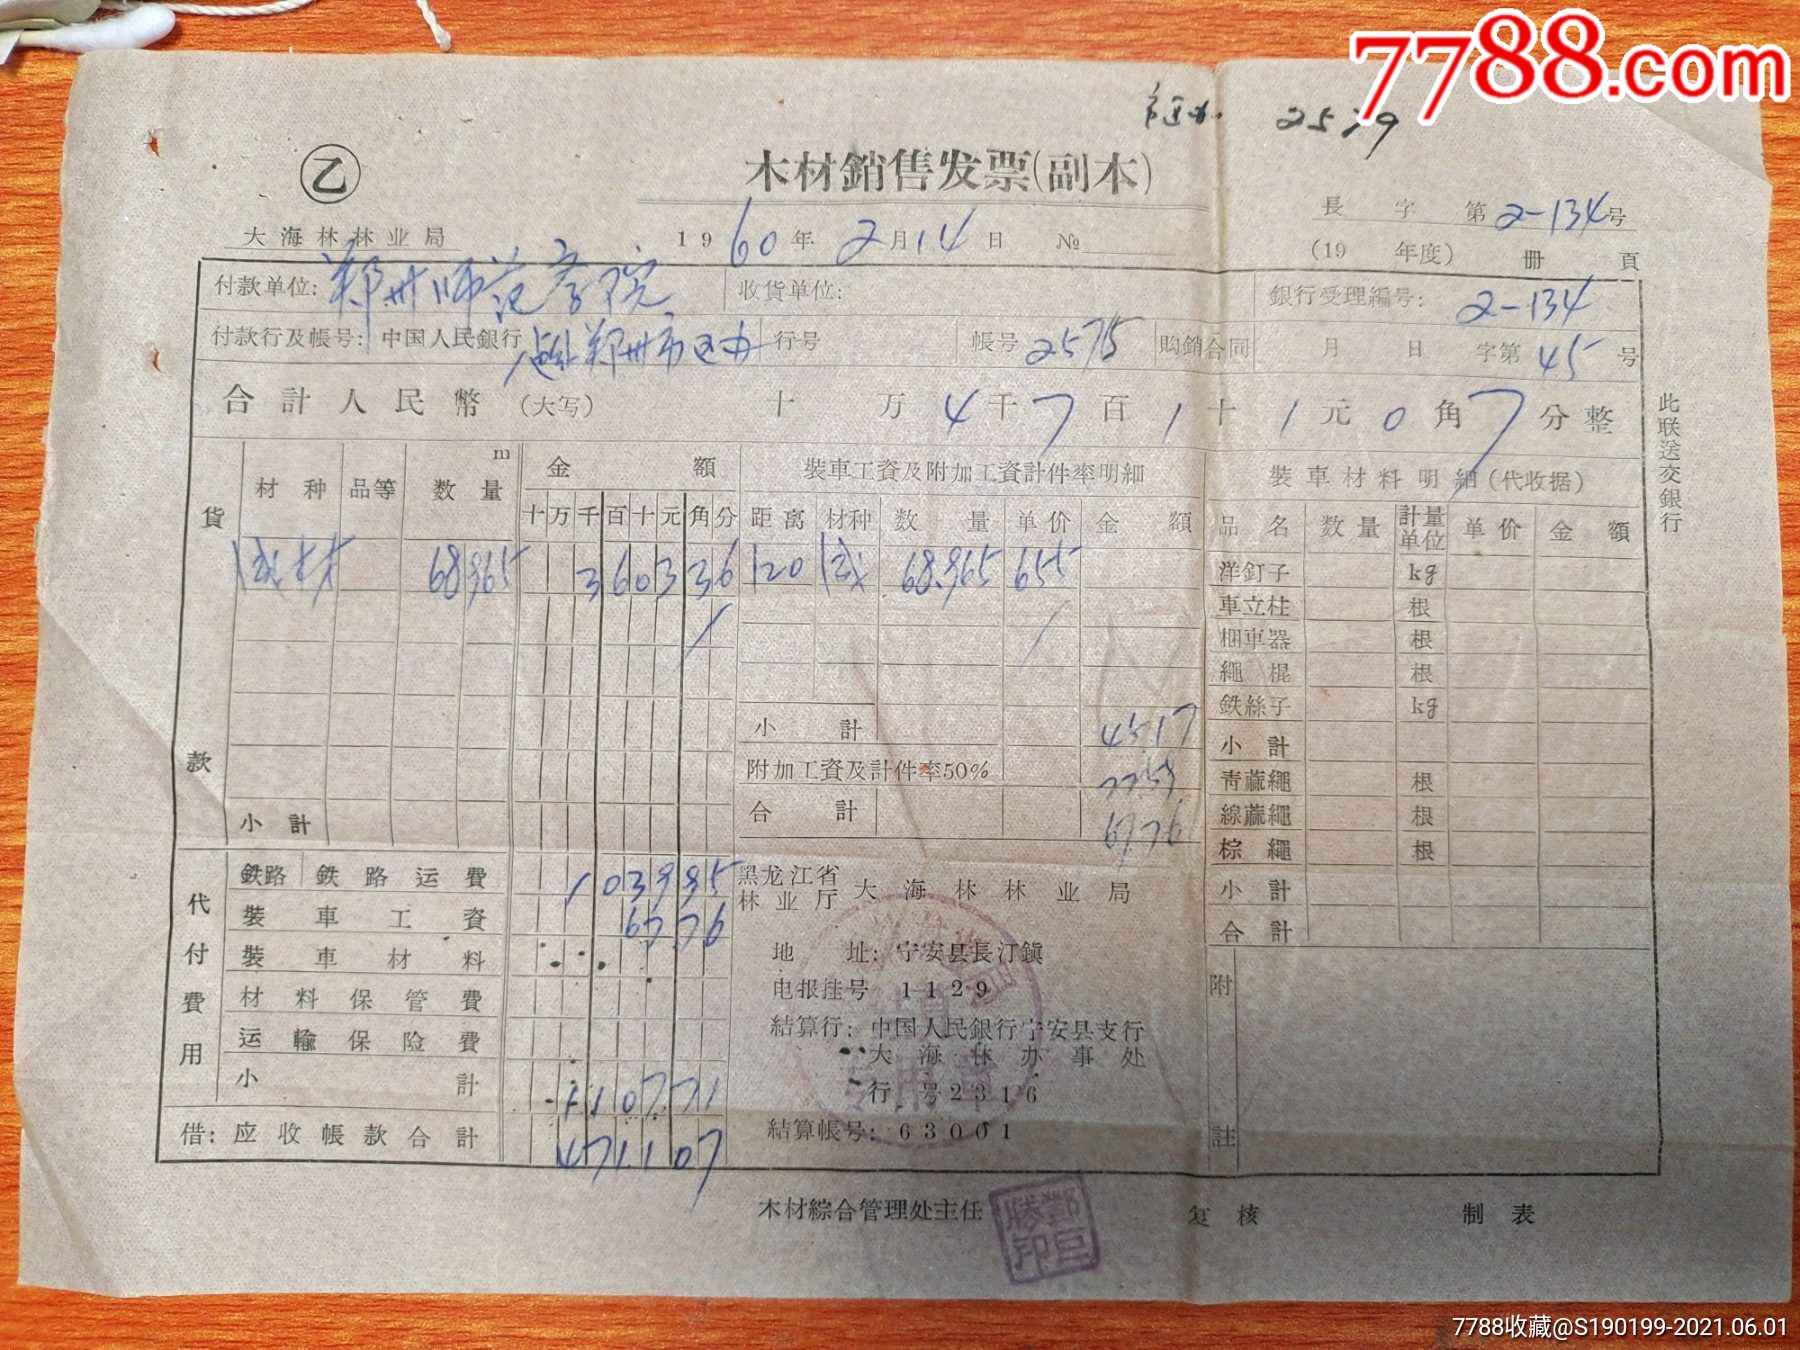 7788.com
木材銷售发票(副本)
乙
大海林林业局
1960年2月14日 №
長 字 第2-134号
(19 年度) 冊 頁
付款单位:郑州师范学院 收貨单位: 銀行受理編号: 2-134
付款行及帳号:中国人民銀行 郑州市 行号 帳号2575 购銷合同 月 日 字第45号
合計人民幣 (大写) 十 万 4千7百1十1元0角7分整
此联送交銀行
貨款
材种 品等 数量 m 金額 十万千百十元角分
裝車工資及附加工資計件率明細
距离 材种 数量 单价 金額
裝車材料明細(代收据)
品名 数量 計量单位 单价 金額
成材 68.965 3603 36 120 成 68.965 655
洋釘子 kg
車立柱 根
梱車器 根
繩棍 根
鉄絲子 kg
小計
青蔴繩 根
線蔴繩 根
棕繩 根
小計
合計
小計 4517
附加工資及計件率50% 2259
合計 6776
小計
代付費用
鉄路 鉄路运費 1039 95
裝車工資 67 76
裝車材料
材料保管費
运輸保险費
小計 1107 71
借:应收帳款合計 4711 07
黑龙江省林业厅 大海林林业局
地址:宁安县長汀鎮
电报挂号 1129
結算行:中国人民銀行宁安县支行
大海林办事处
行号2316
結算帳号:63001
附註
木材綜合管理处主任 复核 制表
7788收藏@S190199-2021.06.01